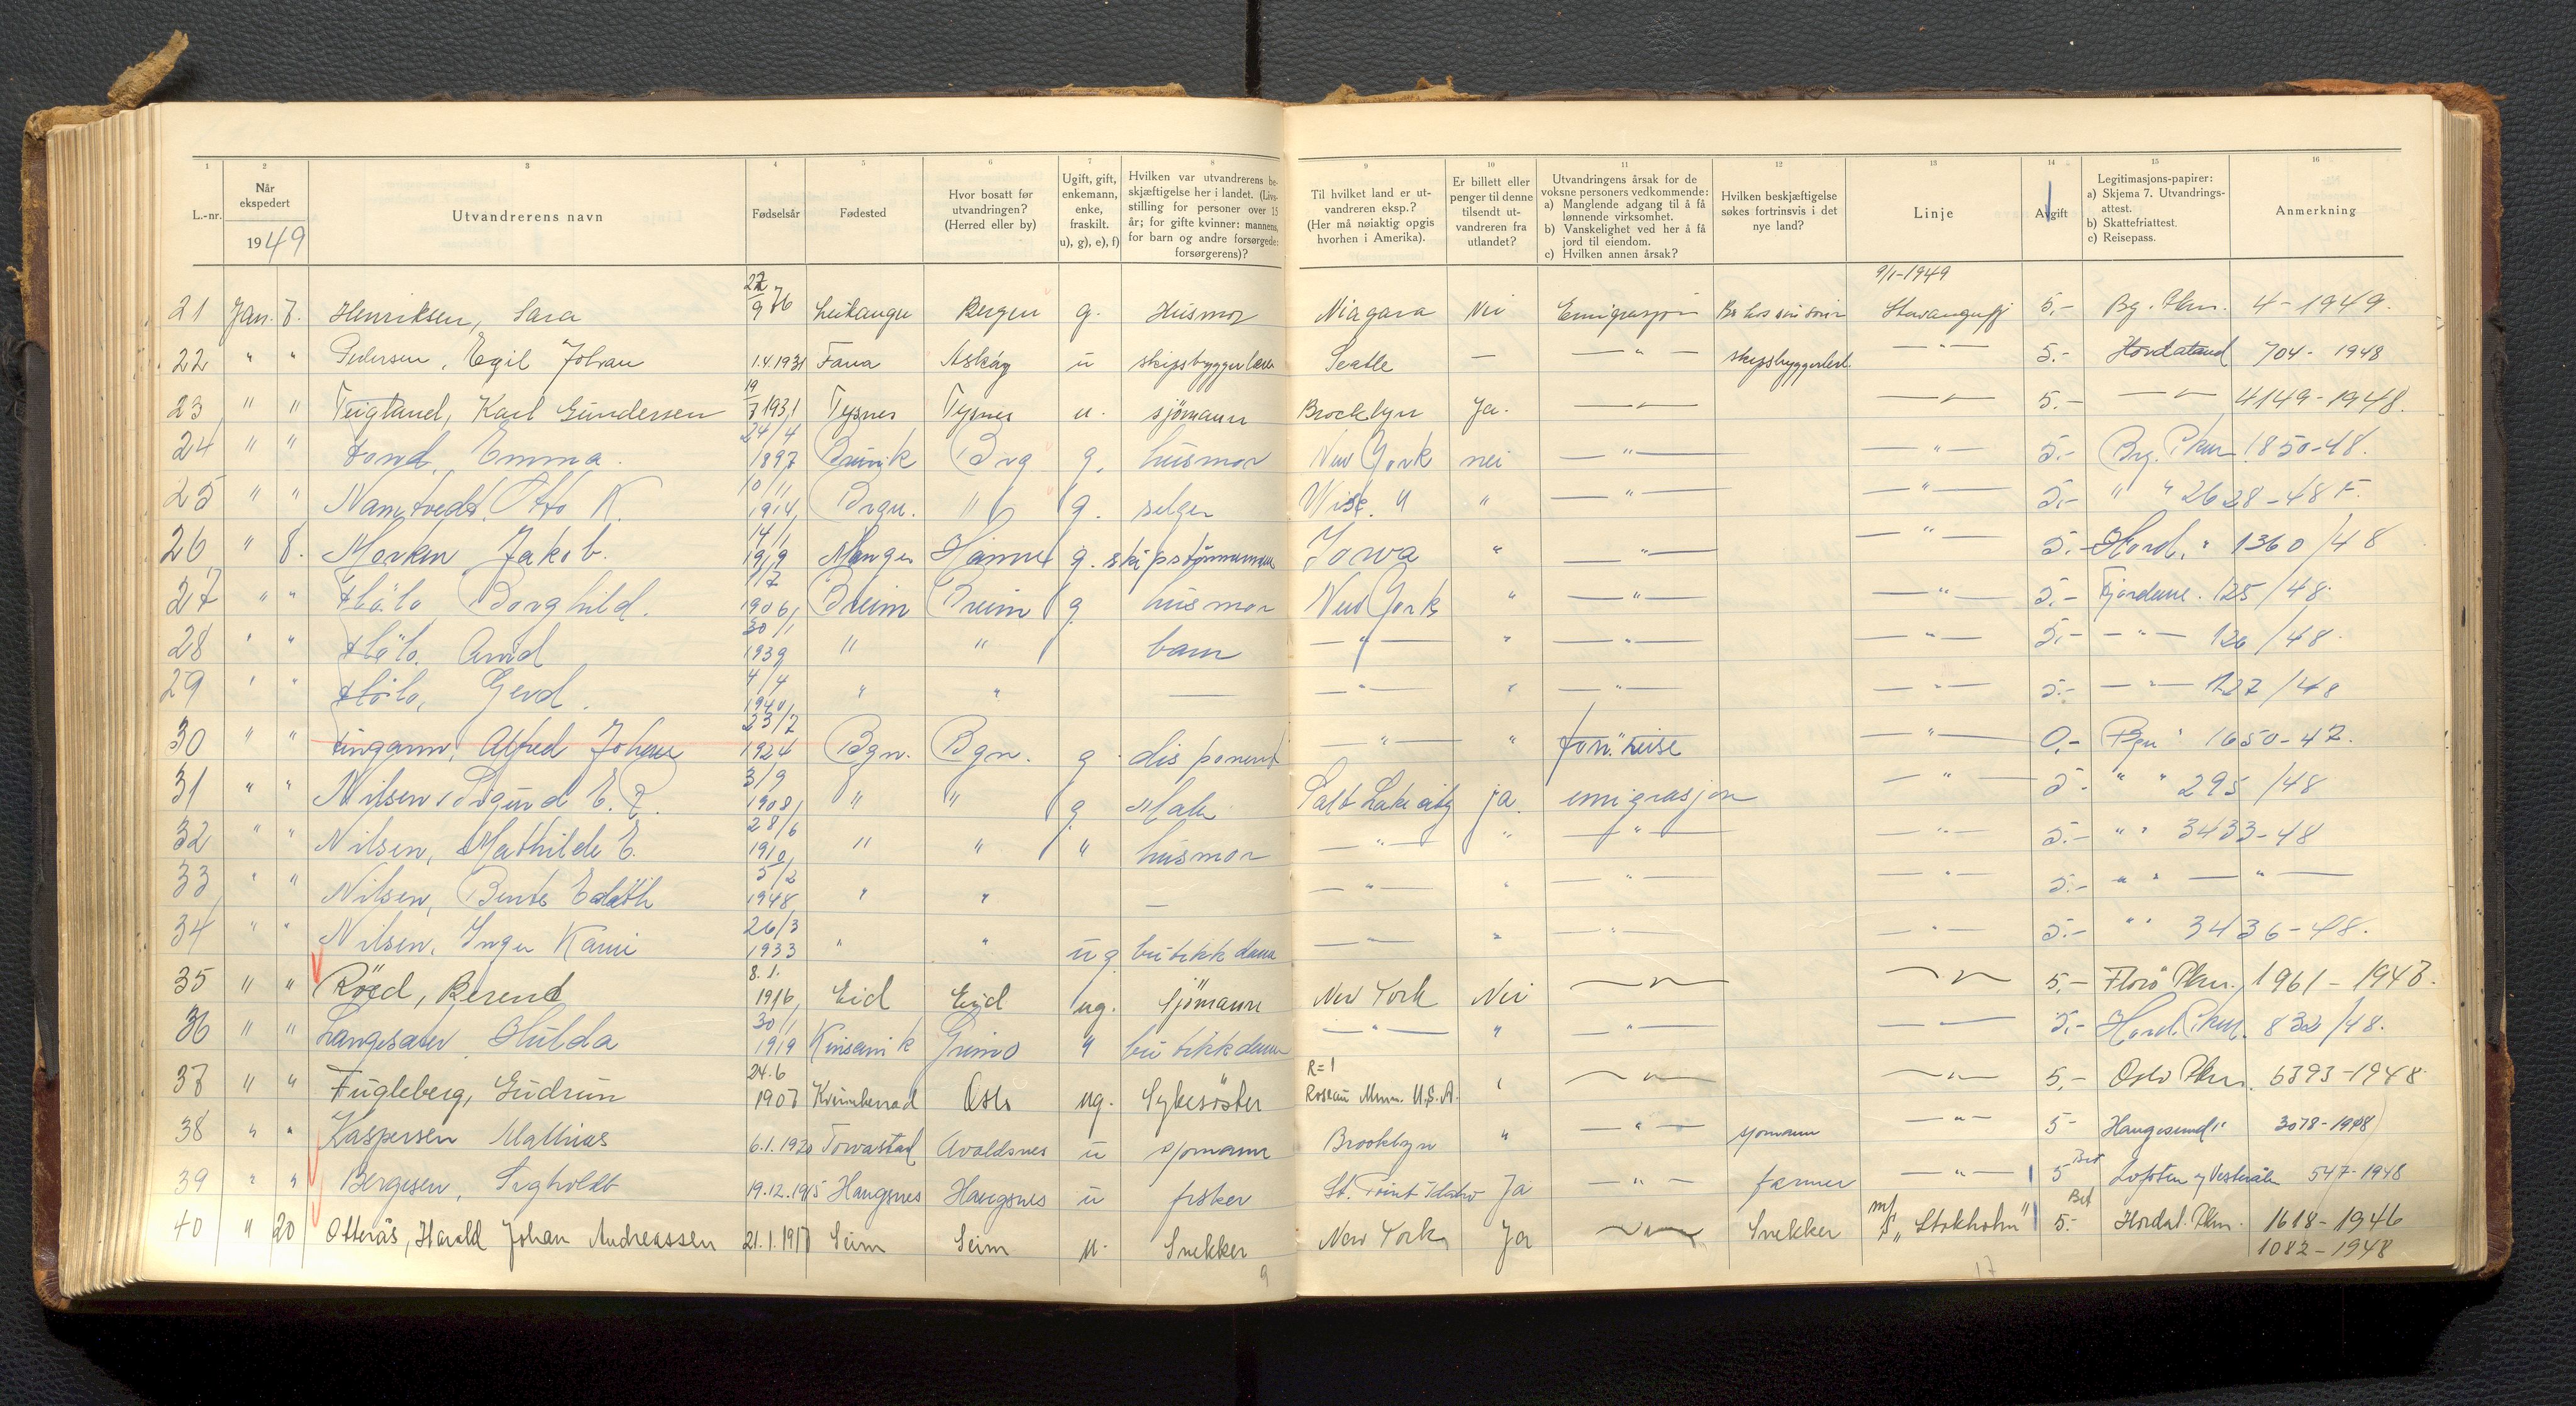 1 2 3 4 5 6 7 8 9 10 11 12 13 14 15 16
L.-nr. Når ekspedert 1949 Utvandrerens navn Fødselsår Fødested Hvor bosatt før utvandringen? (Herred eller by) Ugift, gift, enkemann, enke, fraskilt. u), g), e), f) Hvilken var utvandrerens beskjæftigelse her i landet. (Livsstilling for personer over 15 år; for gifte kvinner: mannens, for barn og andre forsørgede: forsørgerens)? Til hvilket land er utvandreren eksp.? (Her må nøiaktig opgis hvorhen i Amerika). Er billett eller penger til denne tilsendt utvandreren fra utlandet? Utvandringens årsak for de voksne personers vedkommende: a) Manglende adgang til å få lønnende virksomhet. b) Vanskelighet ved her å få jord til eiendom. c) Hvilken annen årsak? Hvilken beskjæftigelse søkes fortrinsvis i det nye land? Linje Avgift Legitimasjons-papirer: a) Skjema 7. Utvandringsattest. b) Skattefriattest. c) Reisepass. Anmerkning
9/1-1949
21 Jan. 7. Henriksen, Sara 9 76 Leikanger Bergen g. Husmor Niagara Nei Emigrasjon Stavangerfj 5,- Bg. Pkm. 4-1949.
22 " " Pedersen, Egil Johan 1.4.1931 Fana Askøy u skipsbyggerlærl Seatle — — " — skipsbyggerlærl. — " — 5.- Hordaland 704-1948
23 " " Teigland, Karl Gundersen 19/7 1931 Tysnes Tysnes u. sjömann Brocklyn Ja. — " — — " — 5.- — " — 4149-1948.
24 " " Emma. 24/4 1897 Bruvik Brg g. husmor New York nei — " — — " — 5.- Brg. Pkm 1850-48.
25 " " Namtvedt, Otto K. 10/11 1914, Brgn. " g. selger Wisc. " " — " — — " — 5,- " " 2628-48 F.
26 " 8. Morken Jakob. 14/1 1919 Manger g. skipstømmermann Iowa " — " — — " — 5.- Hord. " 1360/48
27 " " Borghild. 1906, Breim Breim g husmor New York " — " — — " — 5.- Fjordene. 125/48.
28 " " Arvid 30/1 1939 " " barn — " — " — " — — " — 5,- — " — 126/48.
29 " " Gerd. 4/4 1940, " " — — " — " — " — — " — 5.- — " — 127/48
30 " " Alfred Johan 23/7 1924 Bgn. Bgn. g. disponent — " — " forr. reise — " — 0,- Bgn " 1650-47.
31 " " Nilsen, Sigurd E. 3/9 1908, " " g Maler Salt Lake city ja. emigrasjon — " — 5.- " " 295/48
32 " " Nilsen, Mathilde E. 28/6 1910, " " " husmor — " — " — " — — " — 5.- " " 3433-48
33 " " Nilsen, Bente Edith 5/2 1948 " " — — " — " — " — — " — 5.- " " — " —
34 " " Nilsen, Inger Karin 26/3 1933 " " ug butikkdame — " — " — " — — " — 5.- " " 3436-48.
35 " " Röed, Berend 8.1. 1916, Eid Eid ug. Sjömann New York Nei — " — — " — 5,- Florö Pkm. 1961-1948.
36 " " Langesæter Hulda 30/1 1919 Kinsarvik Grimo " butikkdame — " — " — " — — — 5.- Hord. Pkm. 832/48.
37 " " Fugleberg, Gudrun 24.6 1907 Kvinnherrad Oslo ug. Sykesöster R=1 Roseau Minn. U.S.A. " — " — — " — 5,- Oslo Pkm. 6393-1948.
38 " " Kaspersen Mathias 6.1.1920 Torvastad Avaldsnes u sjømann Brooklyn " — " — sjømann — " — 5- Haugesund " 3078-1948
39 " " Bergesen, 19.12.1915 Haugsnes Haugsnes u fisker St. Point Idaho Ja — " — farmer — " — 5 Bet Lofoten og Vesterålen 547-1948
40 " 20 Otterås, Harald Johan Andreassen 21.1.1917 Seim Seim u. Snekker New York Ja — " — Snekker "Stokholm" 5.- Bet Hordal. Pkm. 1618-1946
1082-1948
9 17